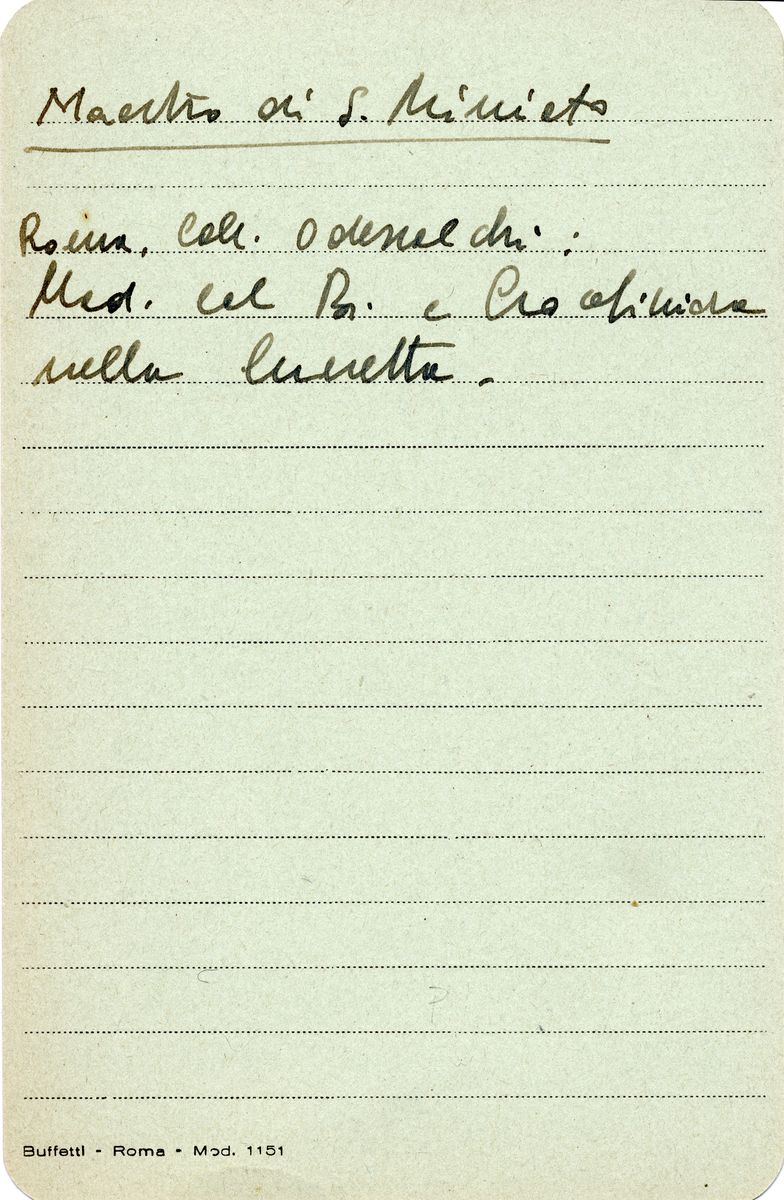 Maestro di S. Miniato
Roma, Coll. Odescalchi:
Mad. col B. e Crocifissione
nella lunetta.
Buffetti - Roma - Mod. 1151